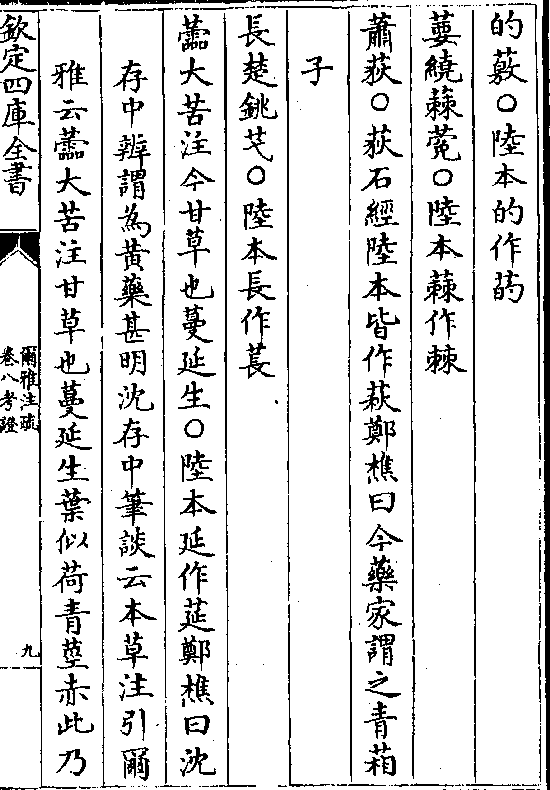 的薂○陸本的作菂
葽繞蕀蒬○陸本蕀作棘
蕭荻○荻石經陸本皆作萩鄭樵曰今藥家謂之青葙
子
長楚銚芅○陸本長作萇
蘦大苦注今甘草也蔓延生○陸本延作莚鄭樵曰沈
存中辨謂為黃藥甚明沈存中筆談云本草注引爾
雅云蘦大苦注甘草也蔓延生葉似荷青莖赤此乃
欽定四庫全書
爾雅注疏
卷八考證
九